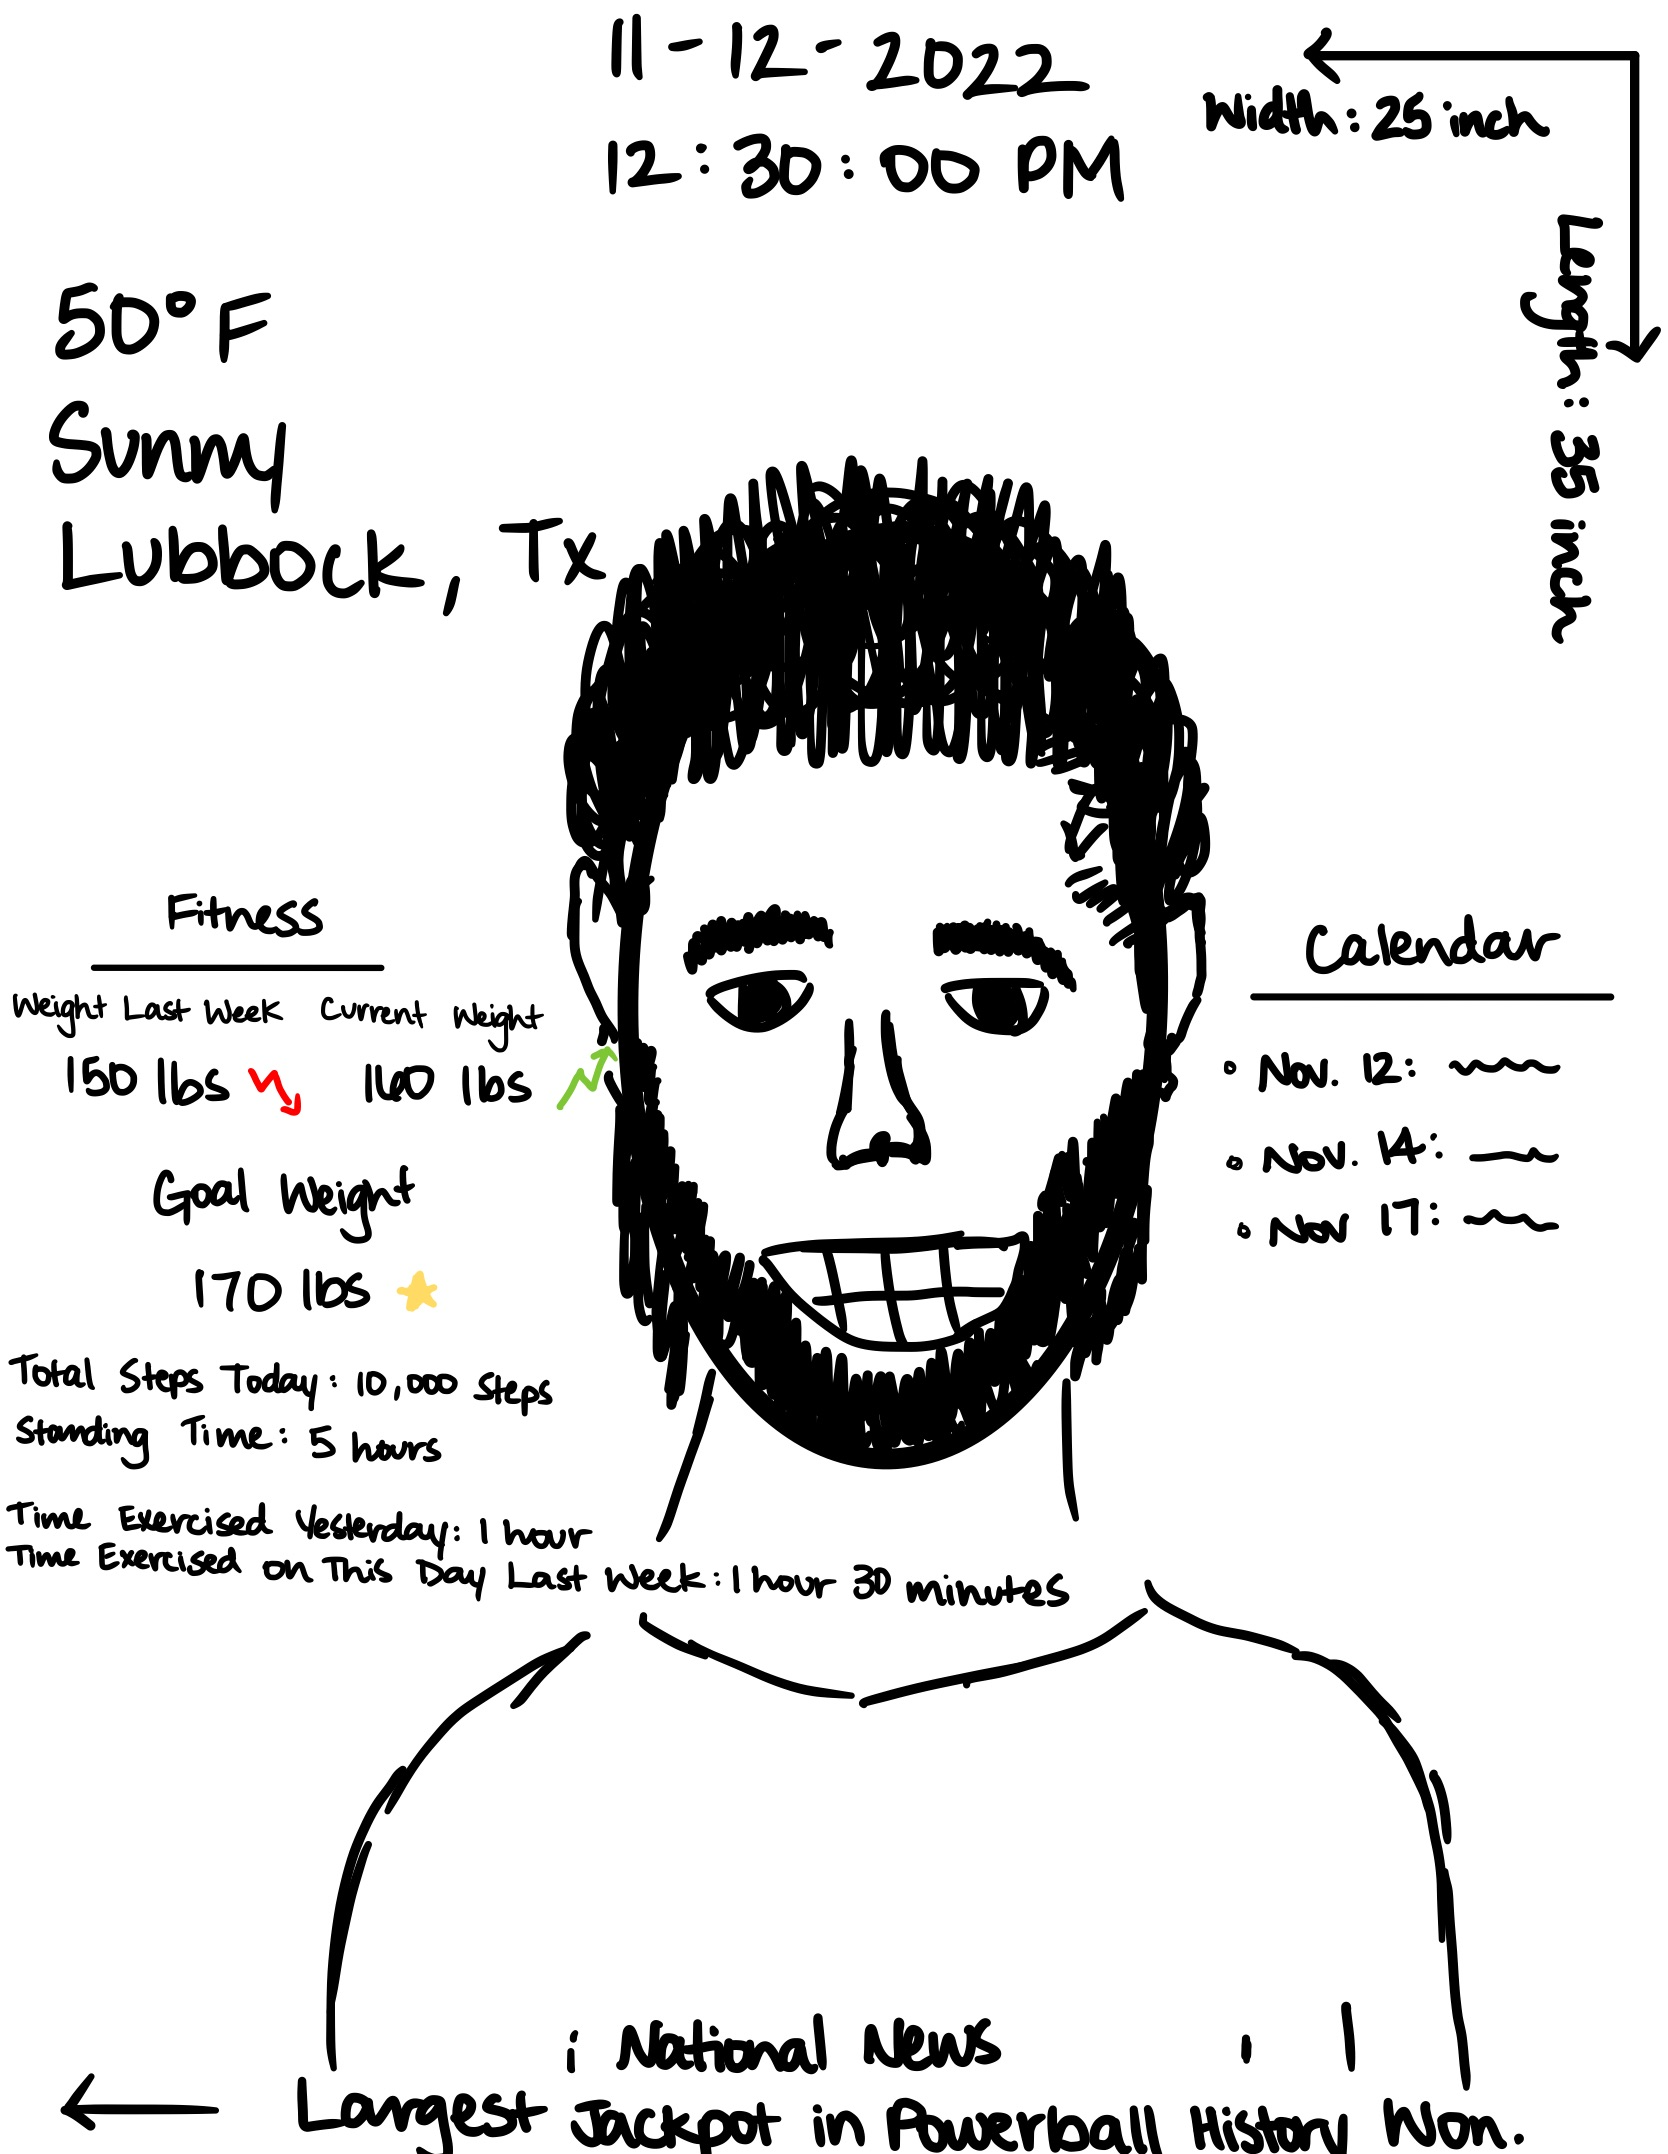 11-12-2022
12:30:00 PM
Width: 25 inch
Length: 35 inch
50°F
Sunny
Lubbock, Tx
Fitness
Weight Last Week Current Weight
150 lbs 160 lbs
Goal Weight
170 lbs
Total Steps Today: 10,000 steps
Standing Time: 5 hours
Time Exercised Yesterday: 1 hour
Time Exercised on This Day Last Week: 1 hour 30 minutes
Calendar
Nov. 12:
Nov. 14:
Nov 17:
National News
Largest Jackpot in Powerball History Won.